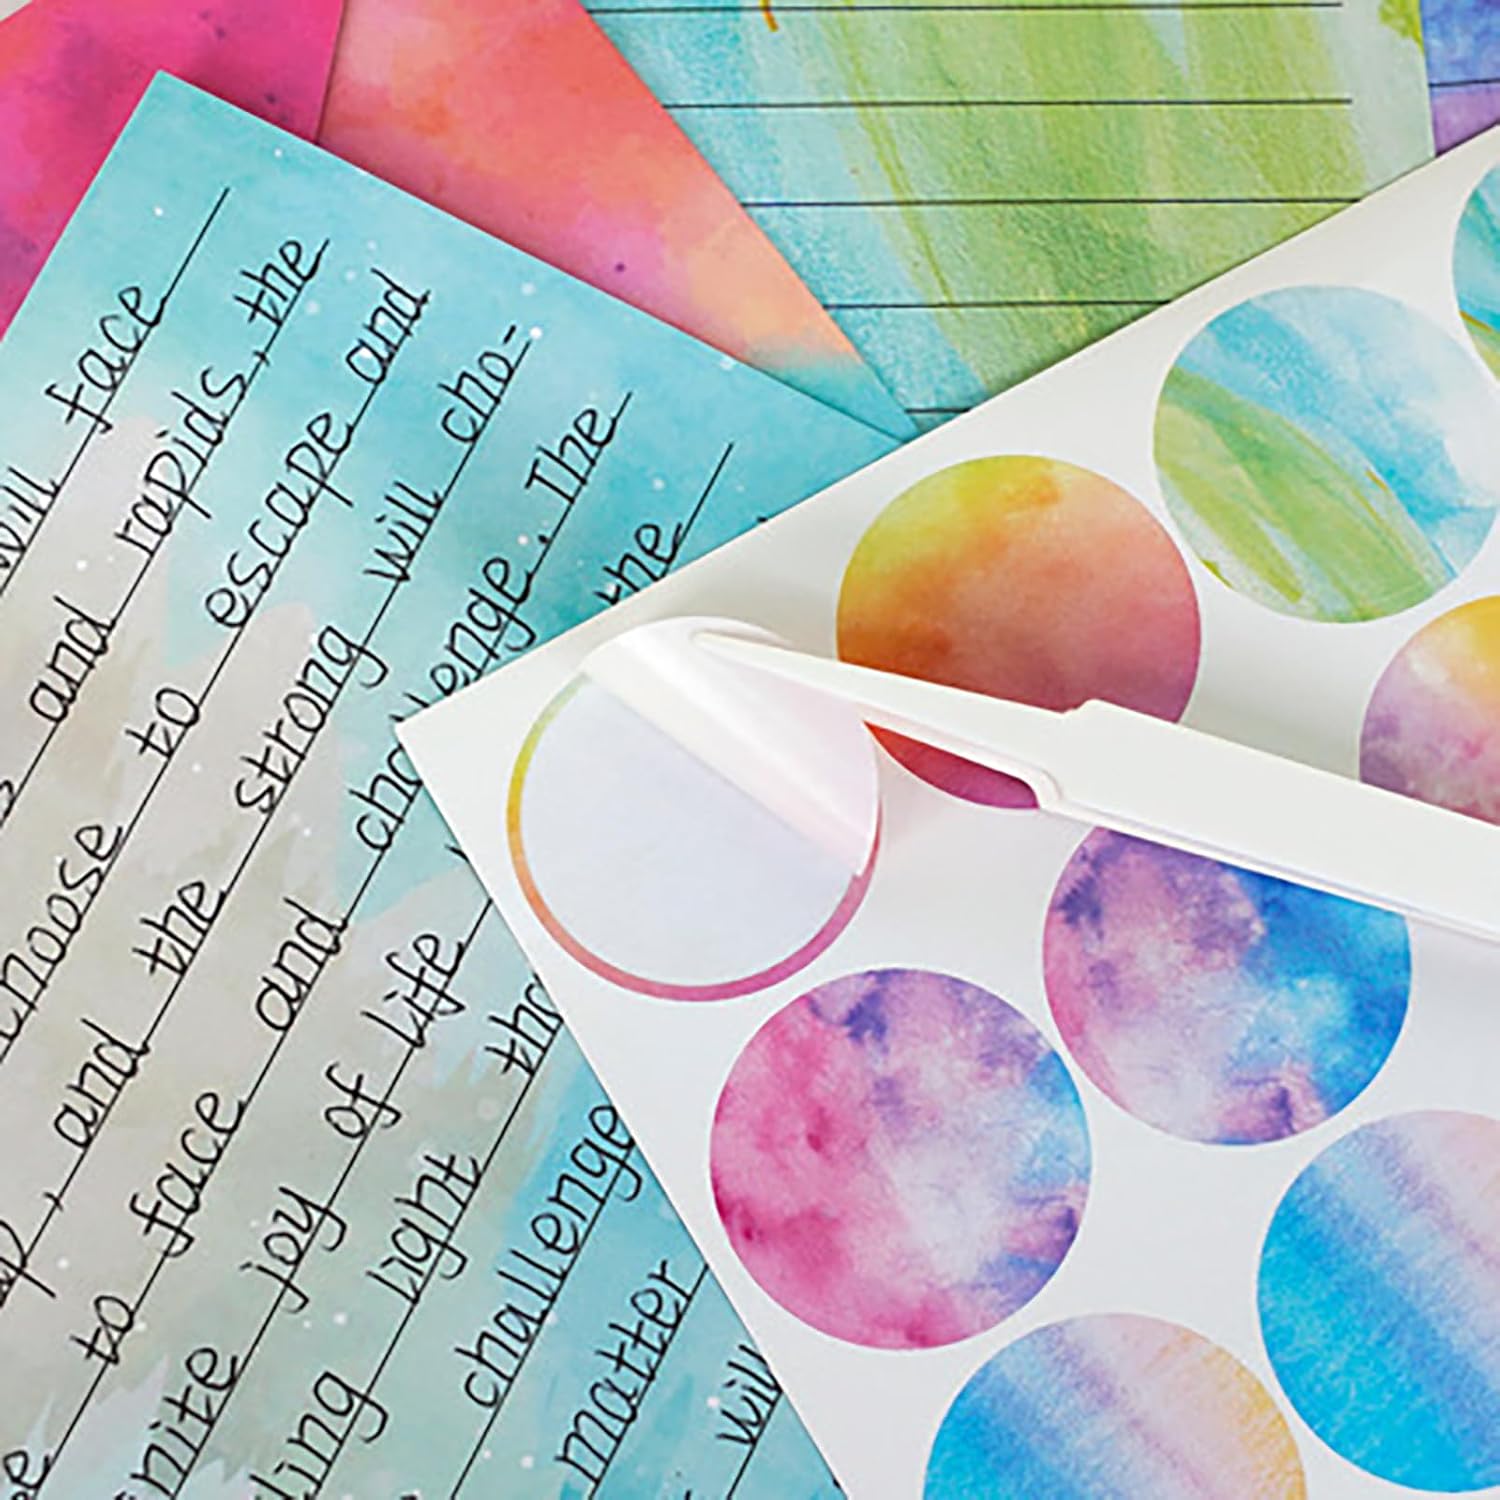 will face
and rapids, the
hoose to escape and
p, and the strong will cho-
to face and challenge. The
nite joy of life the
ling light tha
challenge
matter
will